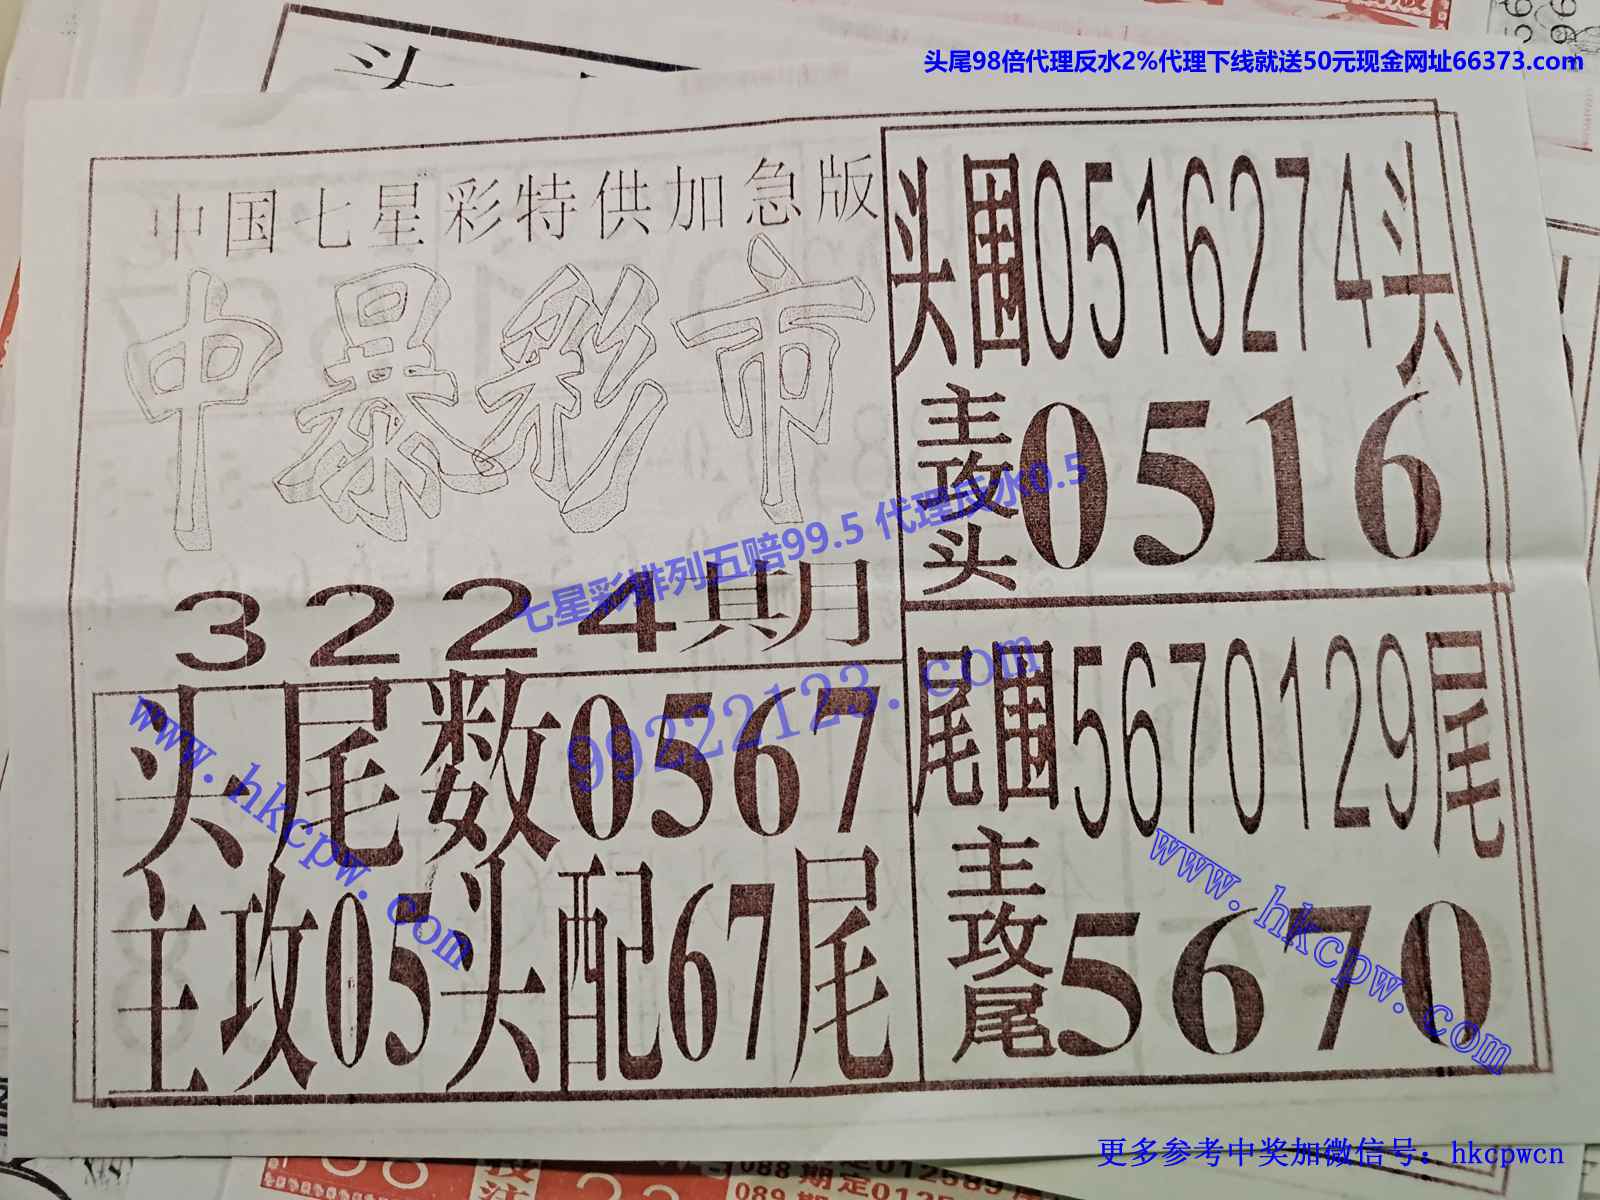 头尾98倍代理反水2%代理下线就送50元现金网址66373.com
头
中国七星彩特供加急版
中暴彩市
3224期
头尾数0567
主攻05头配67尾
头围0516274头
主攻头0516
尾围5670129尾
主攻尾5670
七星彩排列五赔99.5 代理反水0.5
99222123.com
www.hkcpw.com
www.hkcpw.com
更多参考中奖加微信号：hkcpwcn